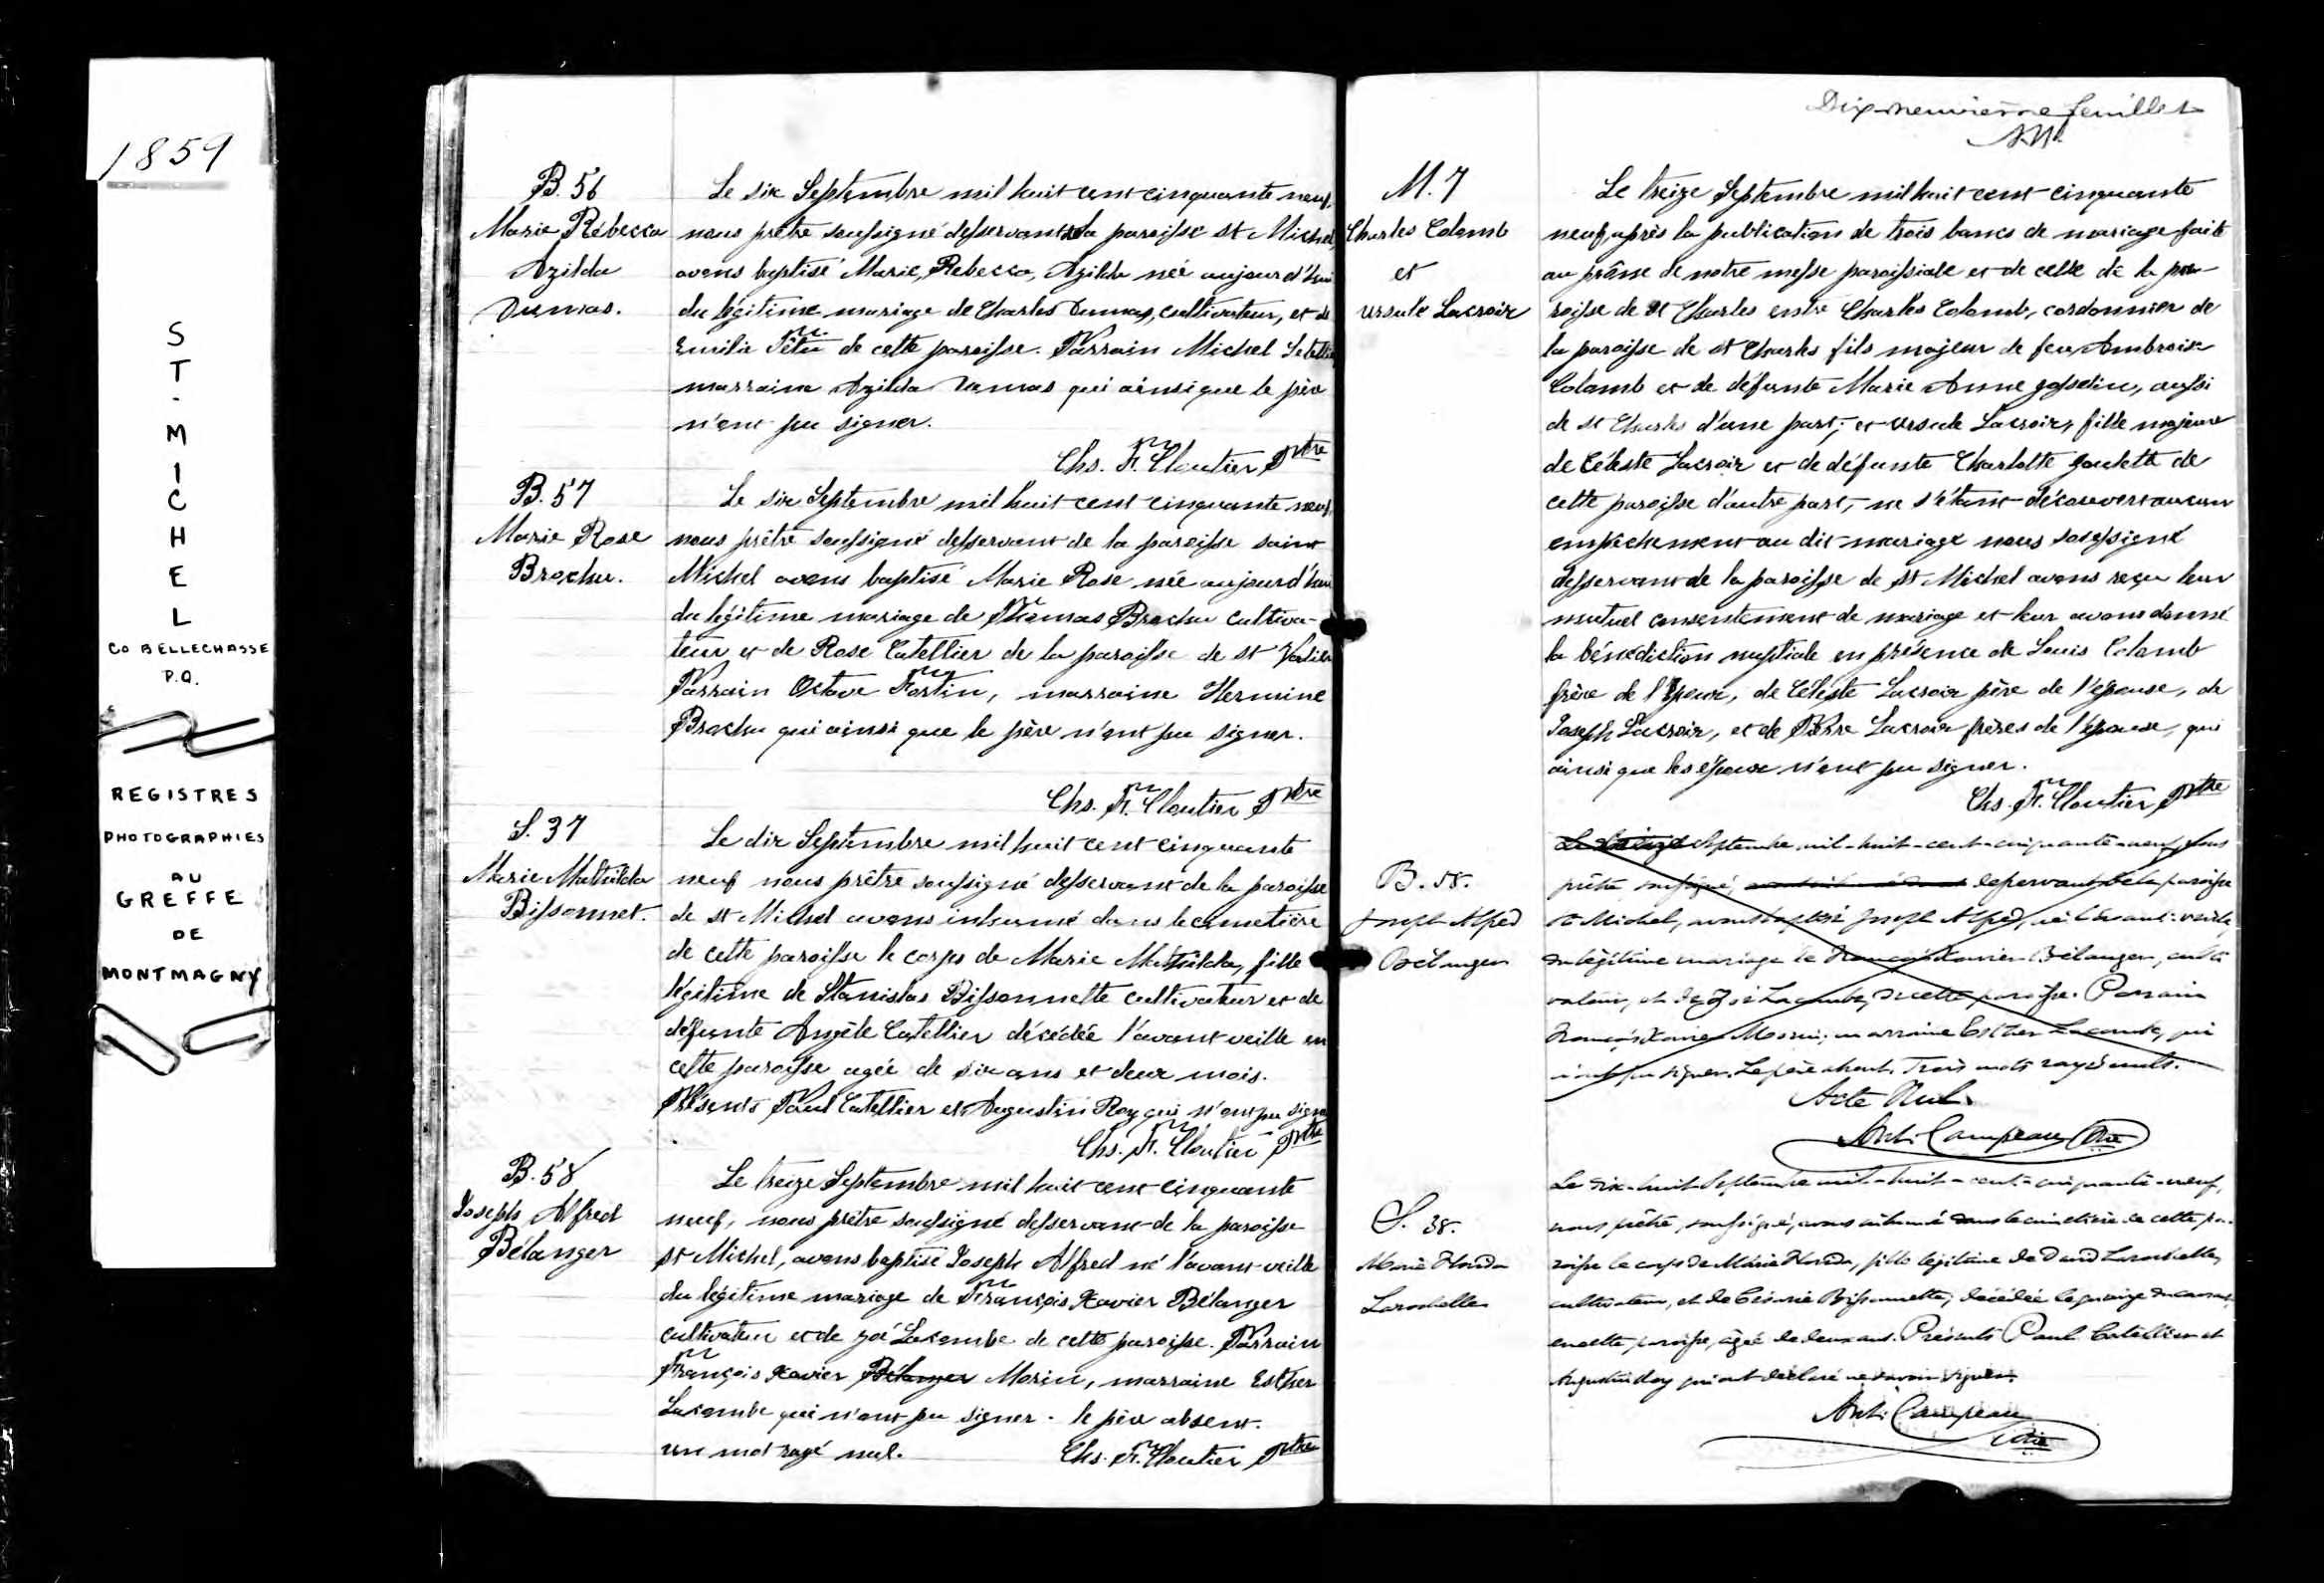 1859
ST-MICHEL
CO BELLECHASSE
P.Q.
REGISTRES
PHOTOGRAPHIES
AU
GREFFE
DE
MONTMAGNY
B. 56
Marie Rébecca
Azilda
Dumas.
Le six Septembre mil huit cent cinquante neuf,
nous prêtre soussigné desservant la paroisse st Michel
avons baptisé Marie, Rebecca, Azilda née aujourd'hui
du légitime mariage de Charles Dumas, cultivateur, et de
Emilie Têtu de cette paroisse. Parrain Michel Letellier
marraine Azilda Dumas qui ainsi que le père
n'ont pu signer.
Chs. F. Cloutier Ptre
B. 57
Marie Rose
Brochu.
Le six Septembre mil huit cent cinquante neuf,
nous prêtre soussigné desservant de la paroisse saint
Michel avons baptisé Marie Rose née aujourd'hui
du légitime mariage de Thomas Brochu cultiva-
teur et de Rose Catellier de la paroisse de st Vallier
Parrain Octave Fortin, marraine Hermine
Brochu qui ainsi que le père n'ont pu signer.
Chs. F. Cloutier Ptre
S. 37
Marie Mathilda
Bissonnet.
Le dix Septembre mil huit cent cinquante
neuf nous prêtre soussigné desservant de la paroisse
de st Michel avons inhumé dans le cimetière
de cette paroisse le corps de Marie Mathilda, fille
légitime de Stanislas Bissonnette cultivateur et de
défunte Angèle Catellier décédée l'avant veille en
cette paroisse agée de six ans et deux mois.
Présents Paul Catellier et Augustin Roy qui n'ont pu signer
Chs. F. Cloutier Ptre
B. 58
Joseph Alfred
Bélanger
Le treize Septembre mil huit cent cinquante
neuf, nous prêtre soussigné desservant de la paroisse
st Michel, avons baptisé Joseph Alfred né l'avant-veille
du légitime mariage de François Xavier Bélanger
cultivateur et de Zoé Lacombe de cette paroisse. Parrain
François Xavier Bélanger Morin, marraine Esther
Lacombe qui n'ont pu signer. le père absent.
un mot rayé nul. Chs. F. Cloutier Ptre
Dix-neuvième feuillet
M. 7
Charles Colomb
et
Ursule Lacroix
Le treize Septembre mil huit cent cinquante
neuf, après la publication de trois bancs de mariage faite
au prône de notre messe paroissiale et de celle de la pa-
roisse de st Charles entre Charles Colomb, cordonnier de
la paroisse de st Charles fils majeur de feu Ambroise
Colomb et de défunte Marie Anne Gosselin, aussi
de st Charles d'une part; et Ursule Lacroix, fille majeure
de Céleste Lacroix et de défunte Charlotte Goulette de
cette paroisse d'autre part, ne s'étant découvert aucun
empêchement au dit mariage nous soussigné
desservant de la paroisse de st Michel avons reçu leur
mutuel consentement de mariage et leur avons donné
la bénédiction nuptiale en présence de Louis Colomb
frère de l'époux, de Céleste Lacroix père de l'épouse, de
Joseph Lacroix, et de Pierre Lacroix frères de l'épouse, qui
ainsi que les époux n'ont pu signer.
Chs. F. Cloutier Ptre
B. 58.
Joseph Alfred
Bélanger
Le treize Septembre mil-huit-cent-cinquante-neuf, nous
prêtre soussigné, desservant de la paroisse
St Michel, avons baptisé Joseph Alfred, né l'avant-veille,
du légitime mariage de François Xavier Bélanger, culti-
vateur, et de Zoé Lacombe, de cette paroisse. Parrain
François Xavier Morin; marraine Esther Lacombe, qui
n'ont pu signer. Le père absent. Trois mots rayés nuls.
Acte Nul.
Ant. Campeau Ptre
S. 38.
Marie
Larochelle
Le dix-huit Septembre mil-huit-cent-cinquante-neuf,
nous prêtre, soussigné, avons inhumé dans le cimetière de cette pa-
roisse le corps de Marie fille légitime de David Larochelle,
cultivateur, et de Césarie Bissonnette, décédée le quinze du courant,
en cette paroisse, âgée de deux ans. Présents Paul Catellier et
Augustin Roy qui ont déclaré ne savoir signer.
Ant. Campeau
Ptre